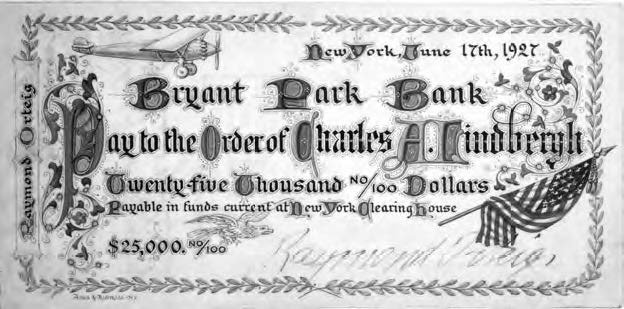 New York, June 17th, 1927
Bryant Park Bank
Pay to the Order of Charles A. Lindbergh
Twenty-five Thousand No/100 Dollars
Payable in funds current at New York Clearing House
$25,000. No/100
Raymond Orteig
Raymond Orteig